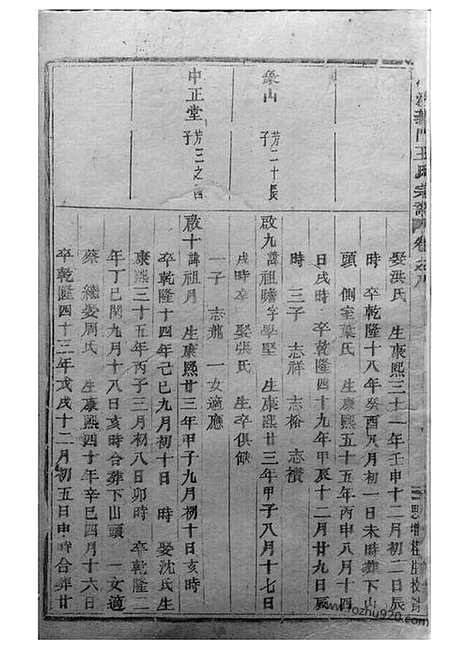 娶洪氏 生康熙三十一年壬申十二月初二日辰
時 卒乾隆十八年癸酉八月初一日未時葬下山
頭 側室葉氏 生康熙五十五年丙申八月十四
日戌時 卒乾隆四十九年甲辰十二月廿九日辰
時 三子 志祥 志裕 志積
象山 芳二十長子
啟九 諱祖贍字學堅 生康熙廿三年甲子八月十七日
戌時卒 娶張氏 生卒俱缺
一子 志龍 一女適應
中正堂 芳三之四子
啟十 諱祖月 生康熙廿三年甲子九月初十日亥時
卒乾隆十四年己巳九月初十日 時 娶沈氏生
康熙三十五年丙子三月初八日卯時 卒乾隆二
年丁巳閏九月十八日亥時合葬下山頭 一女適
蔡 繼娶周氏 生康熙四十年辛巳四月十六日
卒乾隆四十三年戊戌十二月初五日申時合葬廿
www.ozhu920.com